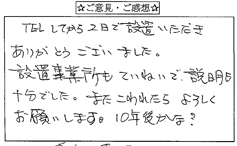 ☆ご意見・ご感想☆
TELしてから2日で設置いただき
ありがとうございました。
設置事業所もていねいで、説明も
十分でした。またこわれたらよろしく
お願いします。10年後かな?